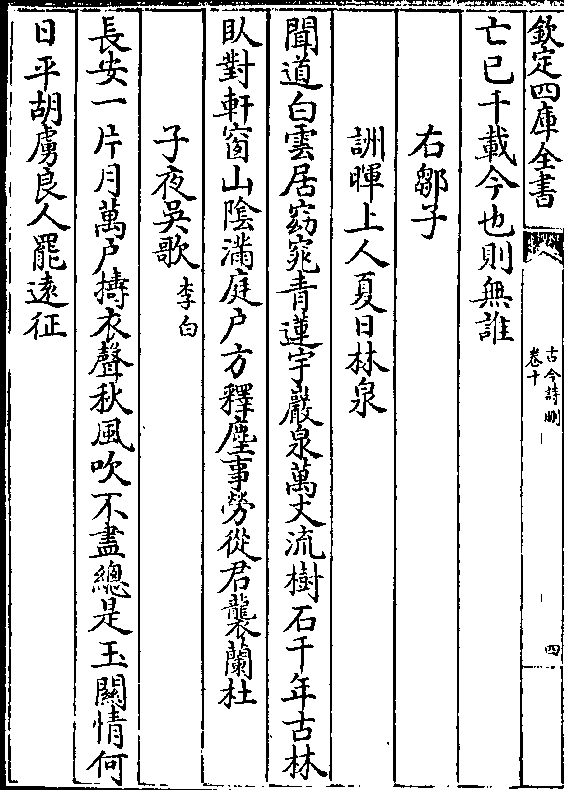 欽定四庫全書
古今詩刪
卷十
四
亡已千載今也則無誰
右鄒子
詶暉上人夏日林泉
聞道白雲居窈窕青蓮宇巖泉萬丈流樹石千年古林
臥對軒窗山陰滿庭户方釋塵事勞從君襲蘭杜
子夜吳歌李白
長安一片月萬户擣衣聲秋風吹不盡總是玉關情何
日平胡虜良人罷遠征